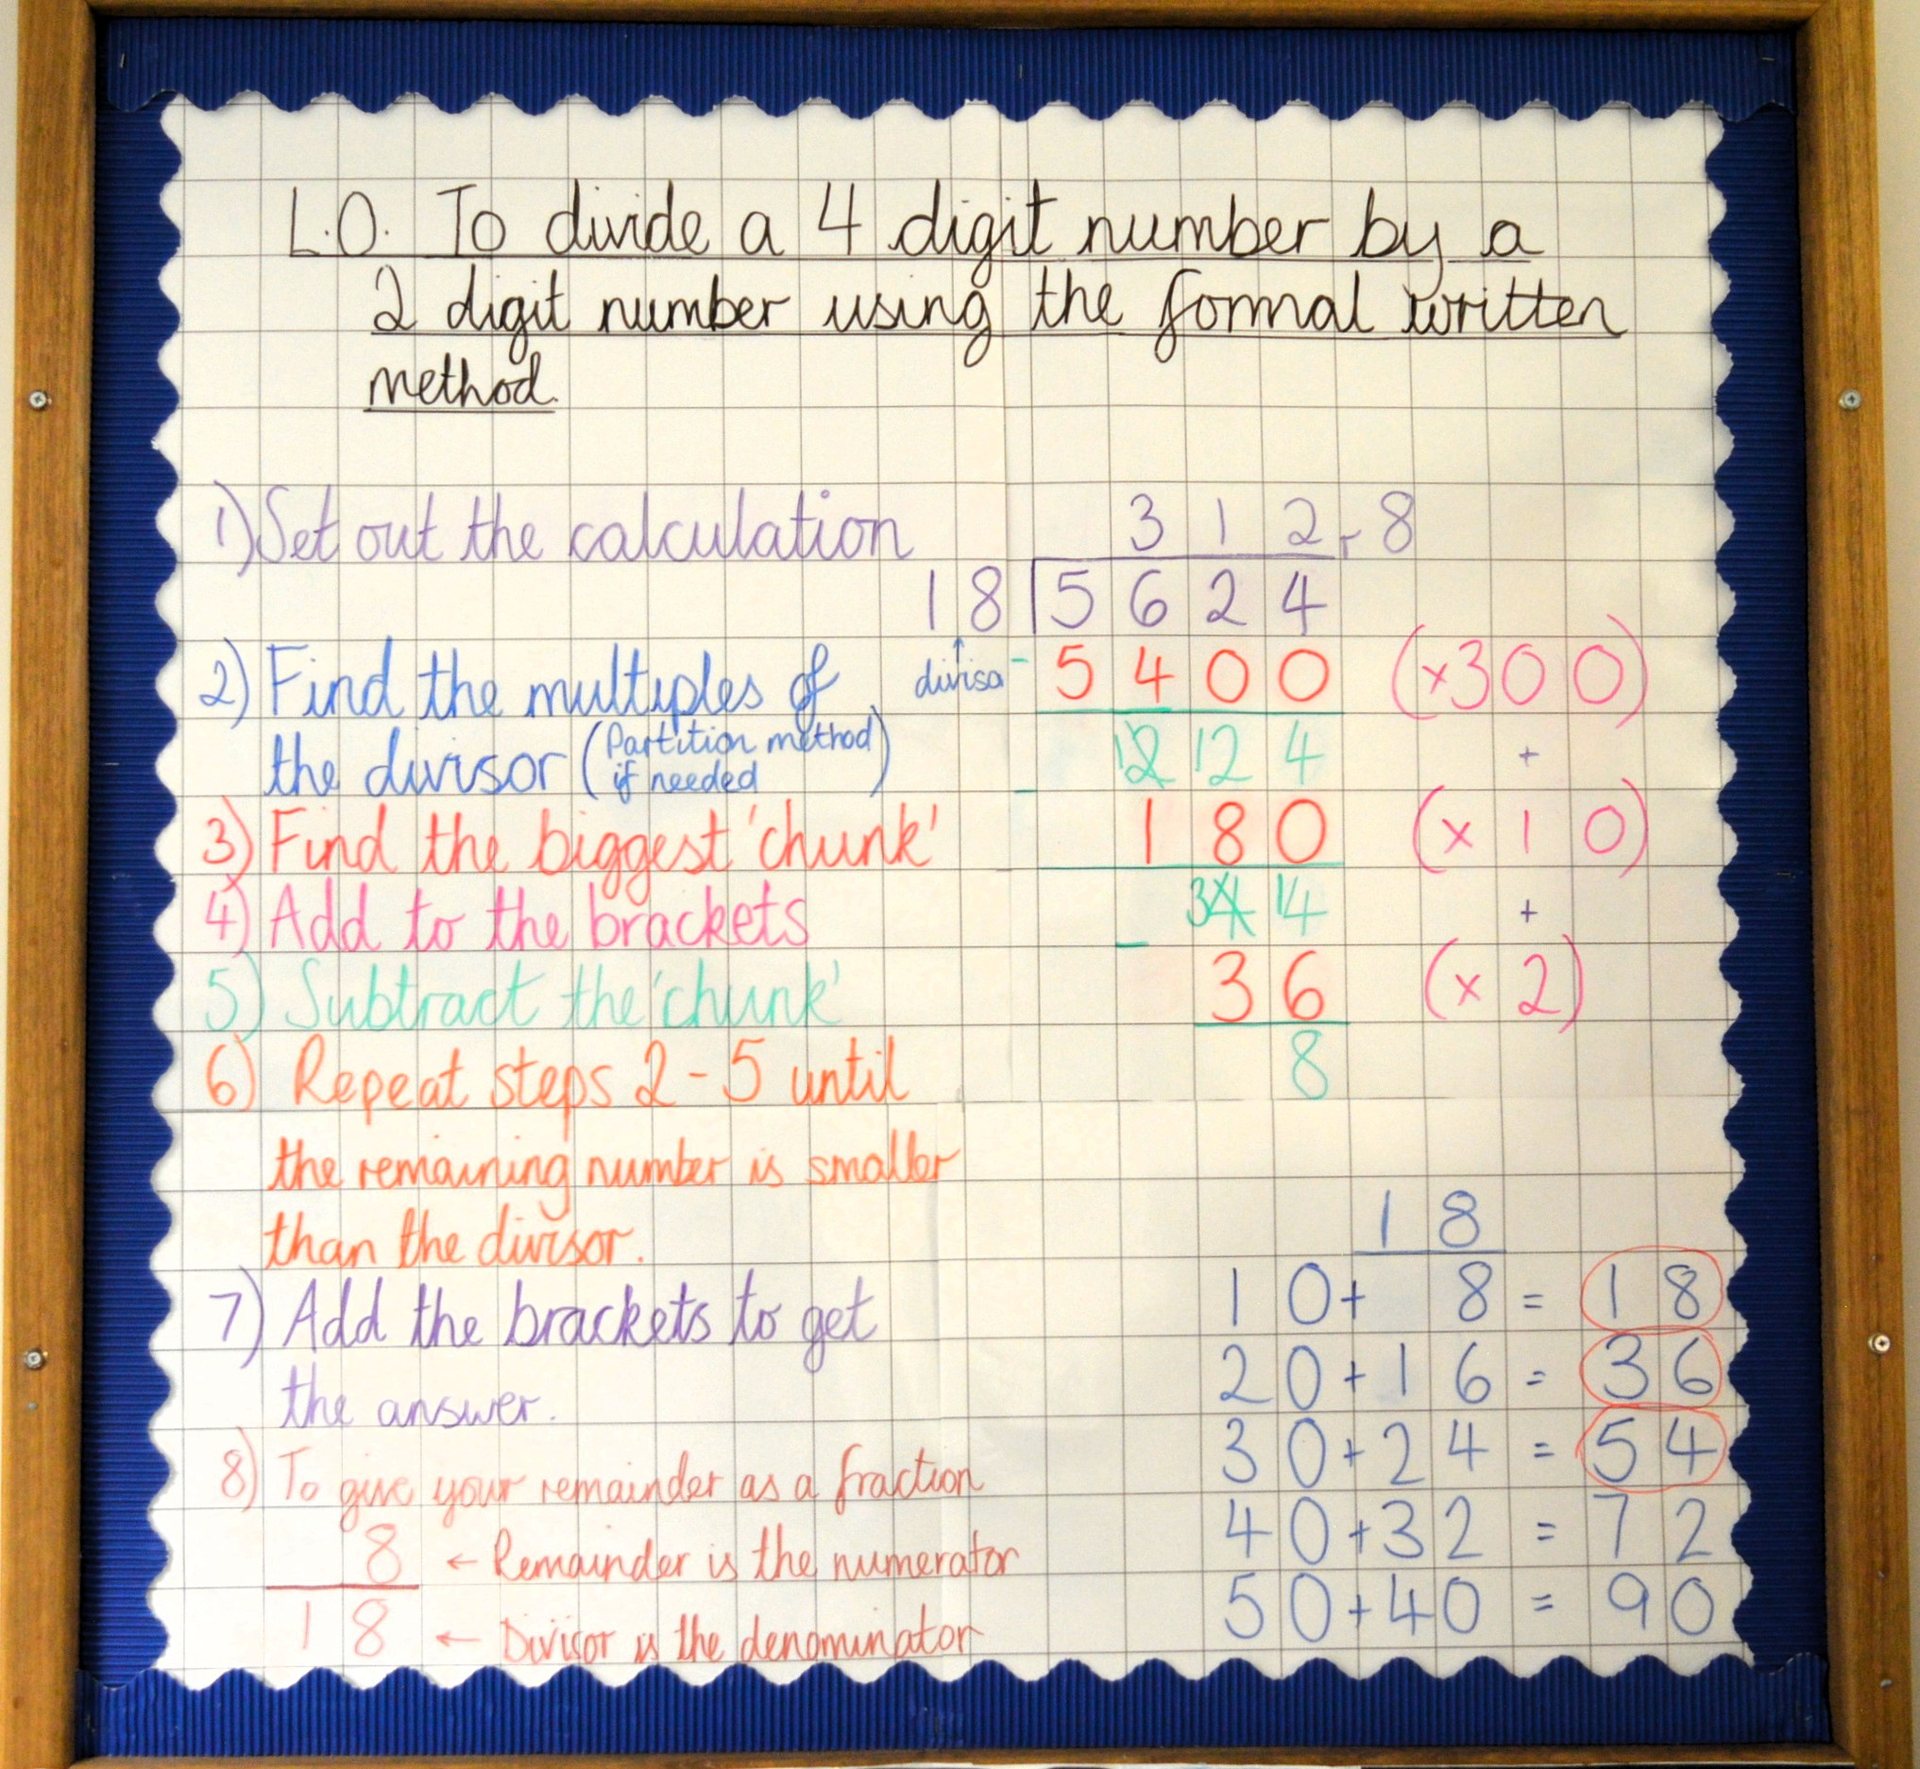 L.O. To divide a 4 digit number by a
2 digit number using the formal written
method.
1) Set out the calculation
3 1 2 r 8
18 5 6 2 4
2) Find the multiples of
the divisor (Partition method
if needed)
divisor
- 5 4 0 0 (×300)
2 12 4 +
3) Find the biggest 'chunk'
- 1 8 0 (× 1 0)
4) Add to the brackets
3 4 14 +
5) Subtract the 'chunk'
- 3 6 (× 2)
6) Repeat steps 2 - 5 until
8
the remaining number is smaller
than the divisor.
7) Add the brackets to get
the answer.
8) To give your remainder as a fraction
8 ← Remainder is the numerator
18 ← Divisor is the denominator
1 8
1 0 + 8 = 1 8
2 0 + 1 6 = 3 6
3 0 + 2 4 = 5 4
4 0 + 3 2 = 7 2
5 0 + 4 0 = 9 0